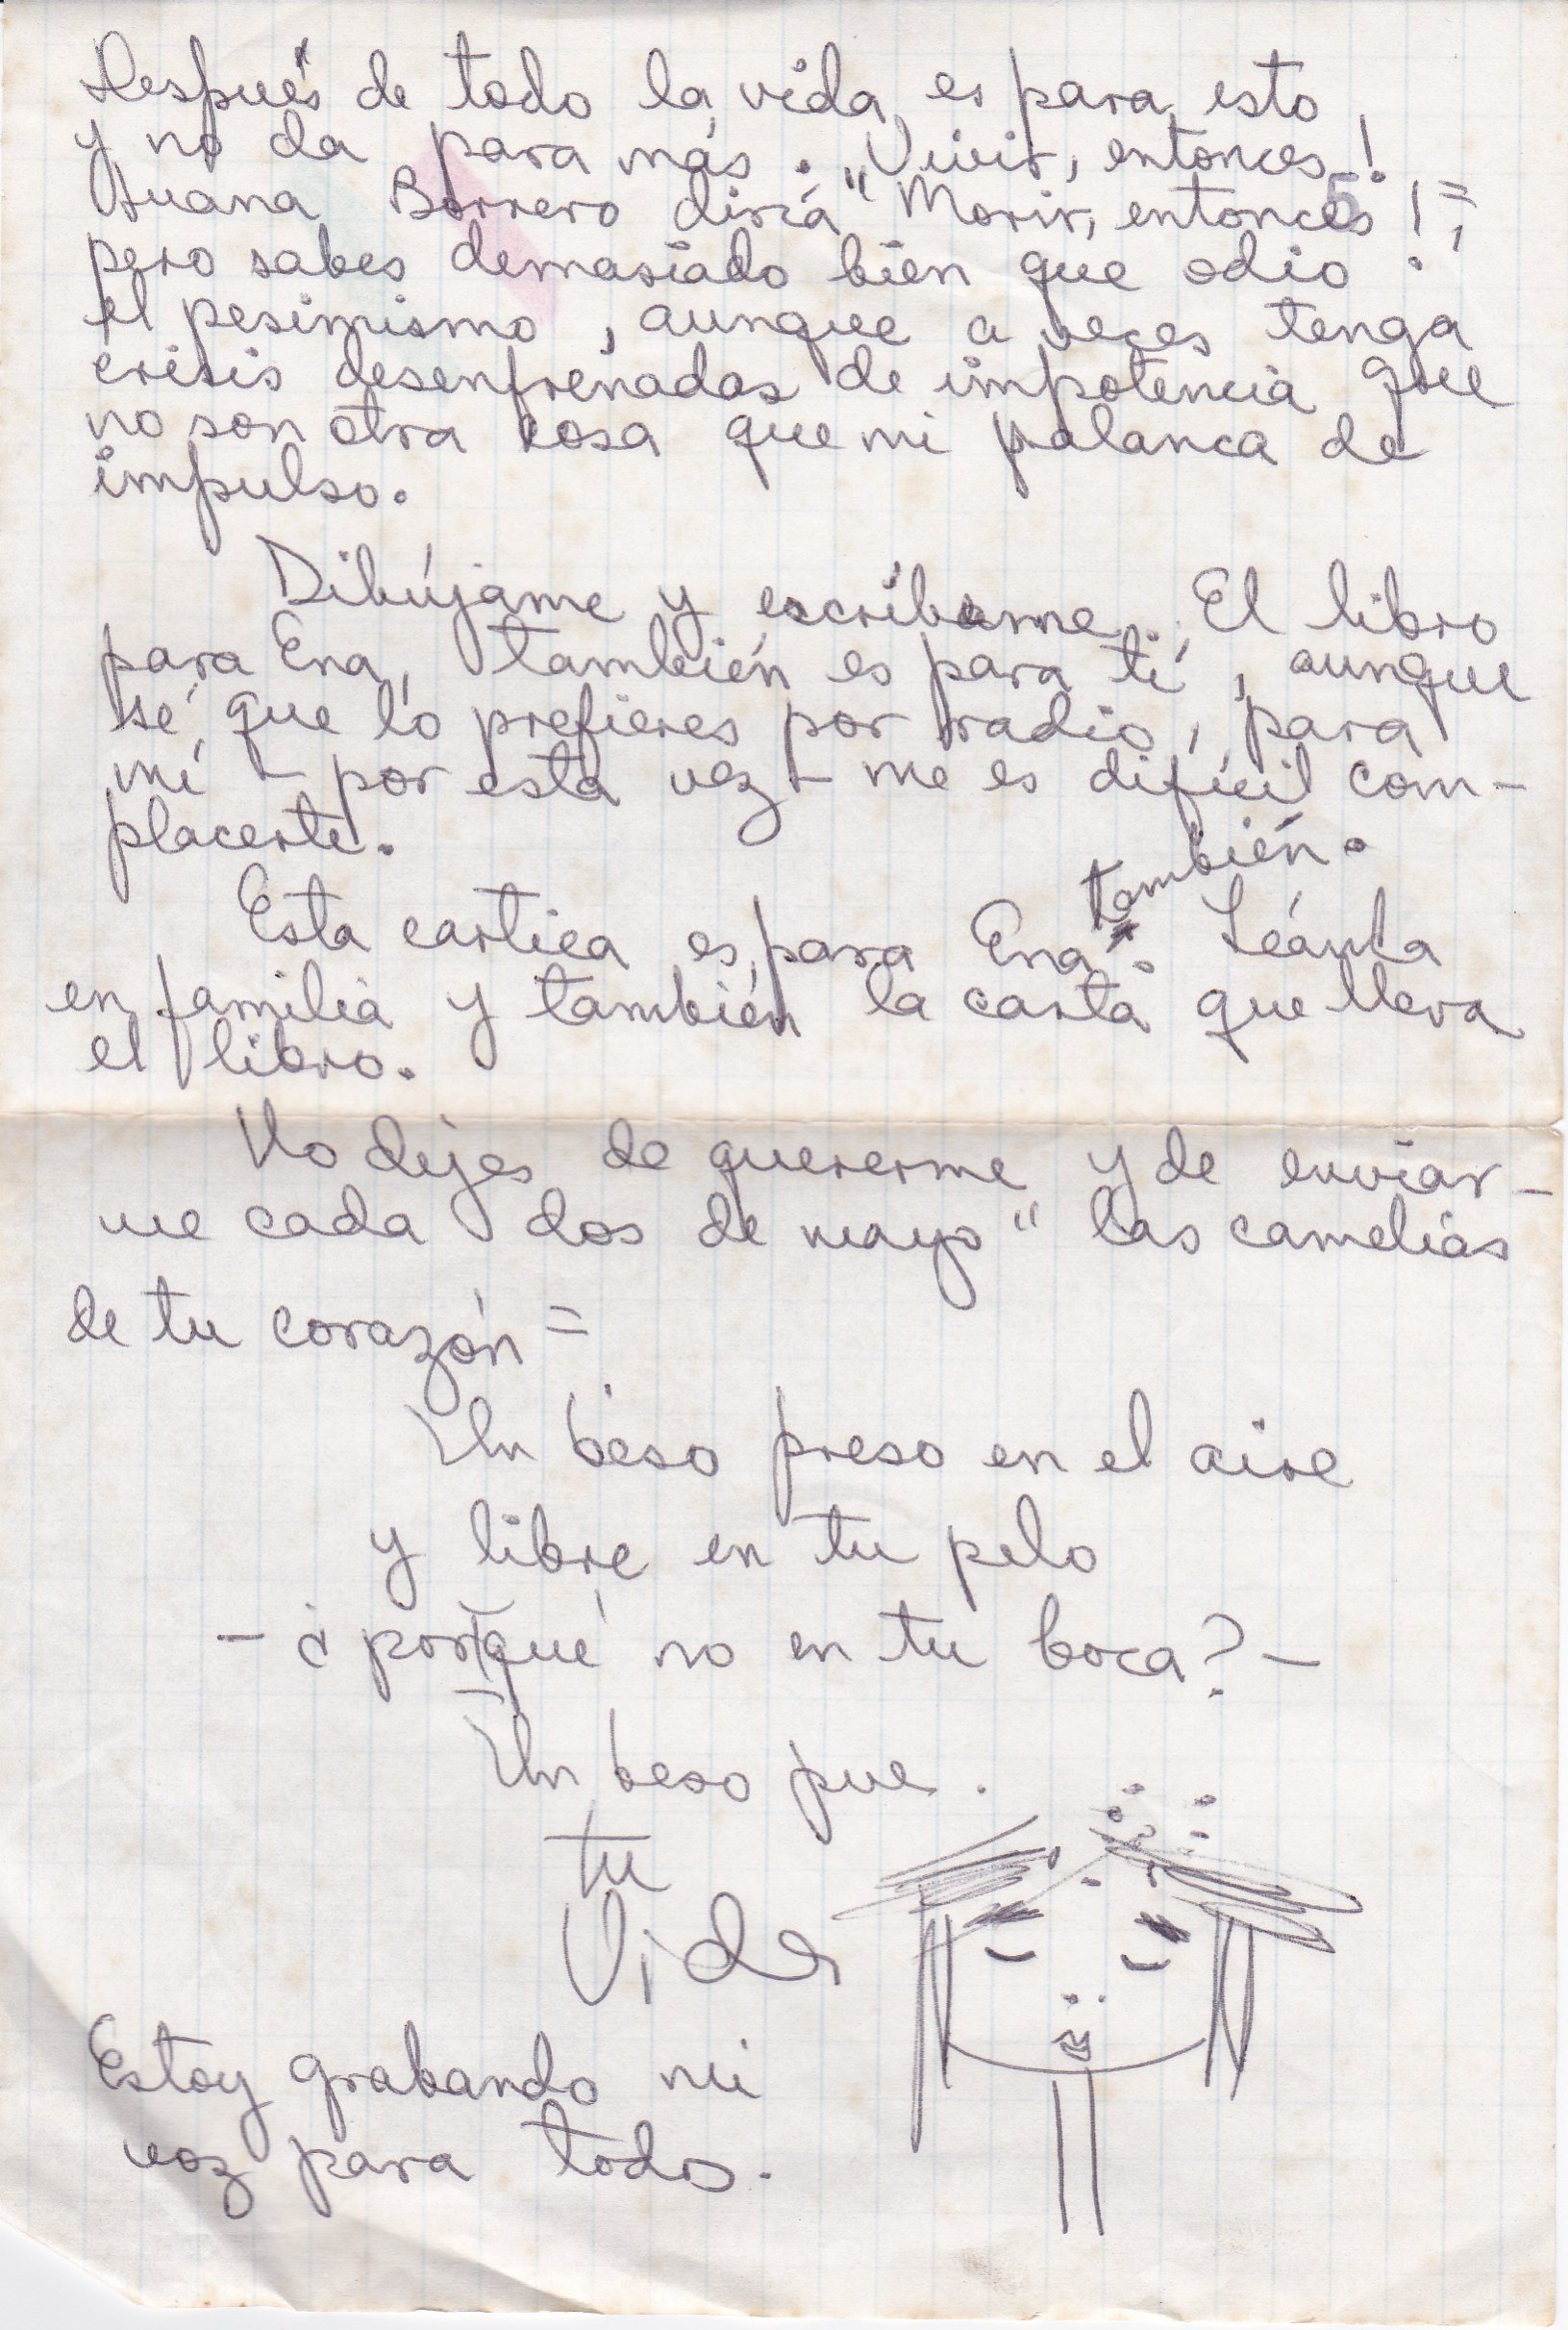 Después de todo la vida es para esto
y no da para más. ¡Vivir, entonces!
Juana Borrero diría "Morir, entonces!";
pero sabes demasiado bien que odio
el pesimismo, aunque a veces tenga
crisis desenfrenadas de impotencia que
no son otra cosa que mi palanca de
impulso.
Dibújame y escríbeme. El libro
para Ena, también es para tí, aunque
sé que lo prefieres por radio, para
mí - por esta vez - me es difícil com-
placerte.
Esta cartica es para Ena también. Léanla
en familia y también la carta que lleva
el libro.
No dejes de quererme y de enviar-
me cada dos de mayo "las camelias
de tu corazón"
Un beso preso en el aire
y libre en tu pelo
- ¿por qué no en tu boca? -
Un beso pue.
tu
Vida
Estoy grabando mi
voz para todos.